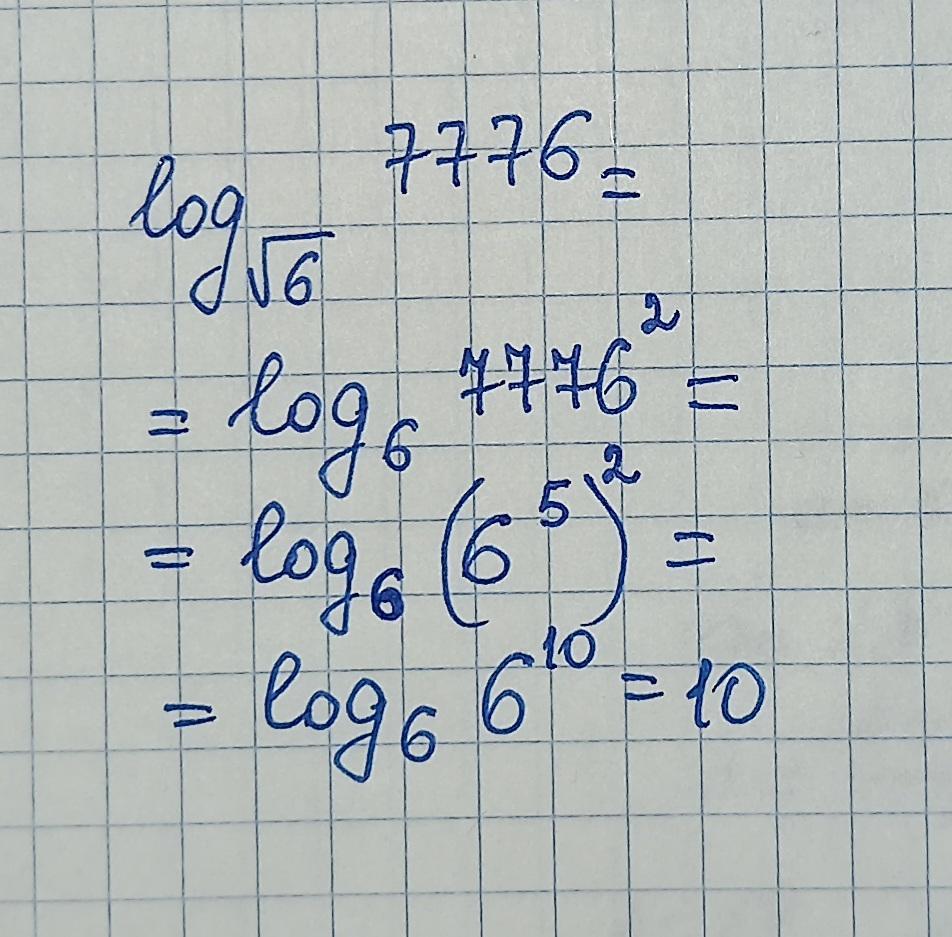 log_{√6} 7776 =
= log_6 7776^2 =
= log_6 (6^5)^2 =
= log_6 6^{10} = 10